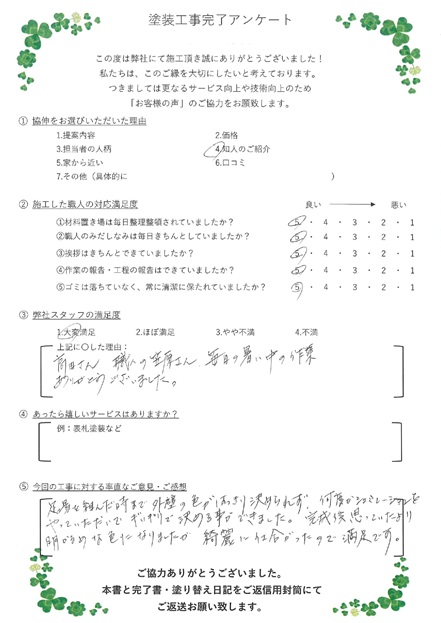 塗装工事完了アンケート
この度は弊社にて施工頂き誠にありがとうございました！
私たちは、このご縁を大切にしたいと考えております。
つきましては更なるサービス向上や技術向上のため
「お客様の声」のご協力をお願致します。
① 協伸をお選びいただいた理由
1.提案内容 2.価格
3.担当者の人柄 4.知人のご紹介
5.家から近い 6.口コミ
7.その他（具体的に ）
② 施工した職人の対応満足度 良い 悪い
①材料置き場は毎日整理整頓されていましたか？ 5・4・3・2・1
②職人のみだしなみは毎日きちんとしていましたか？ 5・4・3・2・1
③挨拶はきちんとできていましたか？ 5・4・3・2・1
④作業の報告・工程の報告はできていましたか？ 5・4・3・2・1
⑤ゴミは落ちていなく、常に清潔に保たれていましたか？ 5・4・3・2・1
③ 弊社スタッフの満足度
1.大変満足 2.ほぼ満足 3.やや不満 4.不満
上記に○した理由：
前田さん 職人の さん 毎日の暑い中の作業
ありがとうございました。
④ あったら嬉しいサービスはありますか？
例：表札塗装など
⑤ 今回の工事に対する率直なご意見・ご感想
足場を組んだ時まで外壁の色がはっきり決められず、何度かシミュレーションを
やっていただいてギリギリで決める事ができました。完成後思っていたより
明かるめな色になりましたが綺麗に仕上がったので満足です。
ご協力ありがとうございました。
本書と完了書・塗り替え日記をご返信用封筒にて
ご返送お願い致します。